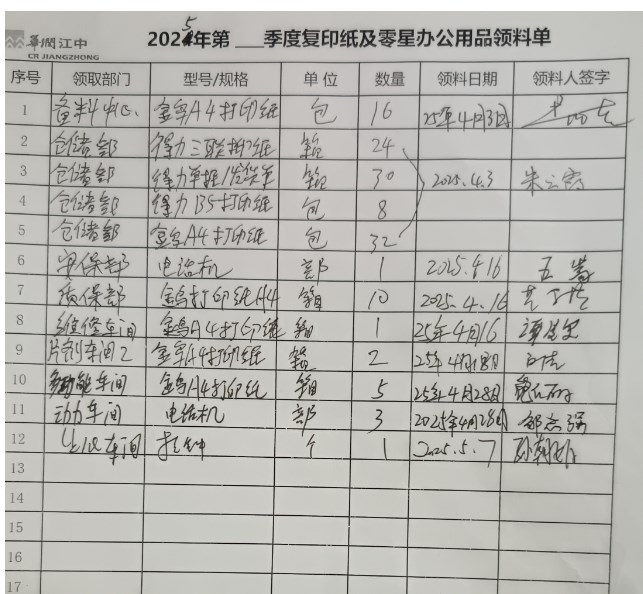 華潤江中
CR JIANGZHONG
2025年第 季度复印纸及零星办公用品领料单
序号 领取部门 型号/规格 单位 数量 领料日期 领料人签字
1 备料中心 金鸟A4打印纸 包 16 25年4月3日
2 仓储部 得力三联打印纸 箱 24
3 仓储部 得力单排/发货单 箱 30 2025.4.3
4 仓储部 得力B5打印纸 包 8
5 仓储部 金鸟A4打印纸 包 32
6 安保部 电话机 部 1 2025.4.16
7 质保部 金鸟打印纸A4 箱 10 2025.4.16
8 维修车间 金鸟A4打印纸 箱 1 25年4月16
9 片剂车间2 金鸟A4打印纸 箱 2 25年4月18日
10 多功能车间 金鸟A4打印纸 箱 5 25年4月28日
11 动力车间 电话机 部 3 2025年4月28日 邹志强
12 车间 挂钟 个 1 2025.5.7
13
14
15
16
17